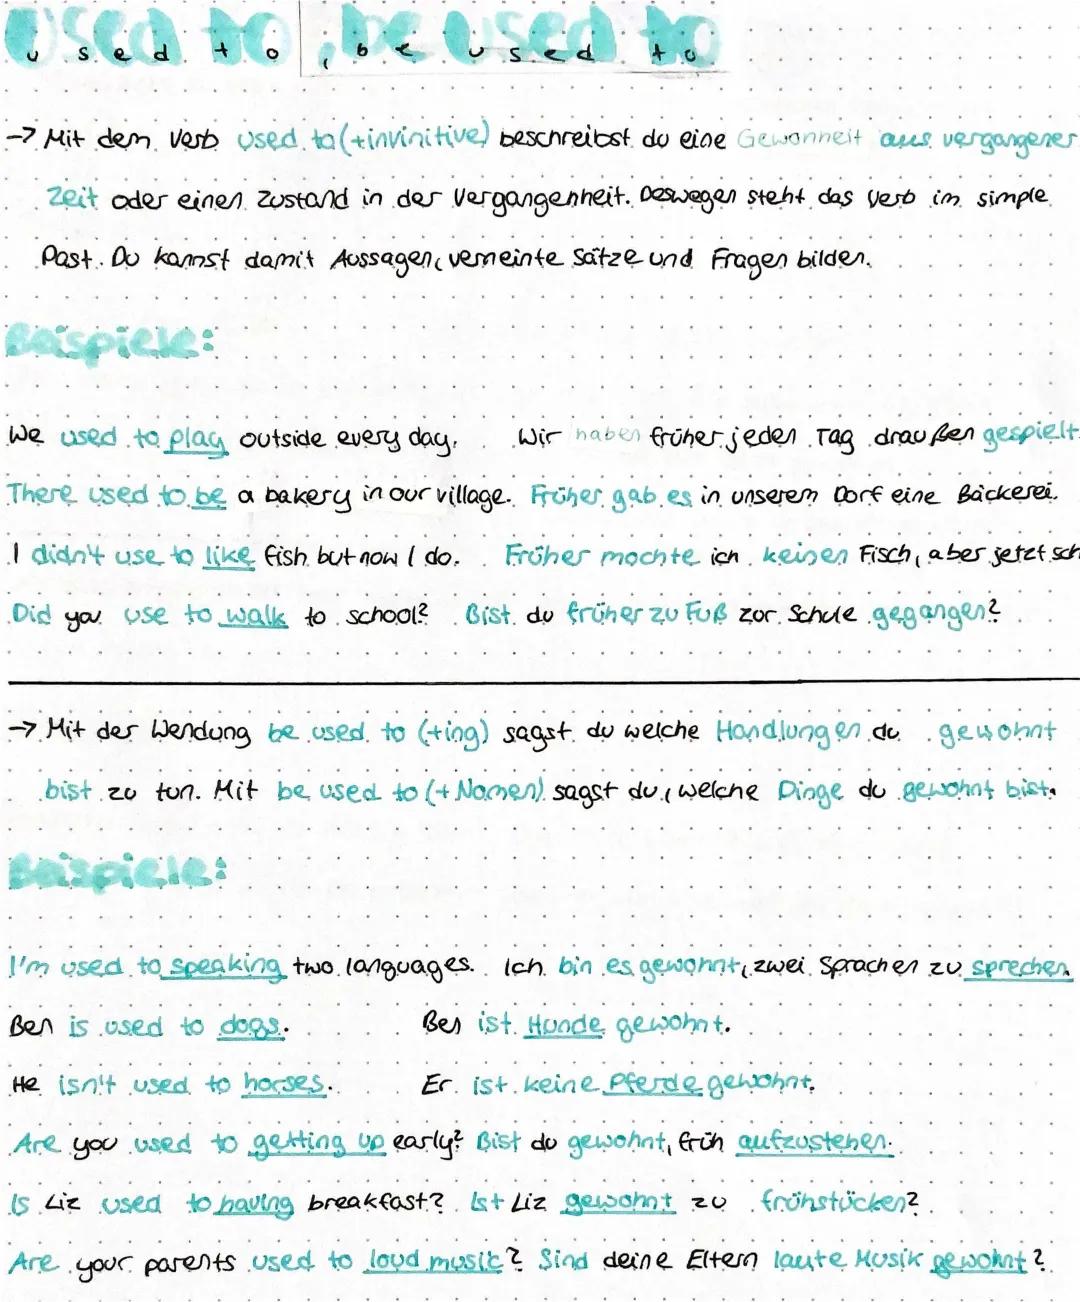 used to, be used to
→ Mit dem Verb used to (+invinitive) beschreibst du eine Gewohnheit aus vergangener
Zeit oder einen Zustand in der Vergangenheit. Deswegen steht das Verb im simple
Past. Du kannst damit Aussagen, verneinte Sätze und Fragen bilden.
Beispiele:
We used to play outside every day. Wir haben früher jeden Tag draußen gespielt.
There used to be a bakery in our village. Früher gab es in unserem Dorf eine Bäckerei.
I didn't use to like fish but now I do. Früher mochte ich keinen Fisch, aber jetzt sch
Did you use to walk to school? Bist du früher zu Fuß zur Schule gegangen?
→ Mit der Wendung be used to (+ing) sagst du welche Handlungen du gewohnt
bist zu tun. Mit be used to (+ Nomen) sagst du, welche Dinge du gewohnt bist.
Beispiele:
I'm used to speaking two languages. Ich bin es gewohnt, zwei Sprachen zu sprechen.
Ben is used to dogs. Ben ist Hunde gewohnt.
He isn't used to horses. Er ist keine Pferde gewohnt.
Are you used to getting up early? Bist du gewohnt, früh aufzustehen.
Is Liz used to having breakfast? Ist Liz gewohnt zu frühstücken?
Are your parents used to loud music? Sind deine Eltern laute Musik gewohnt?